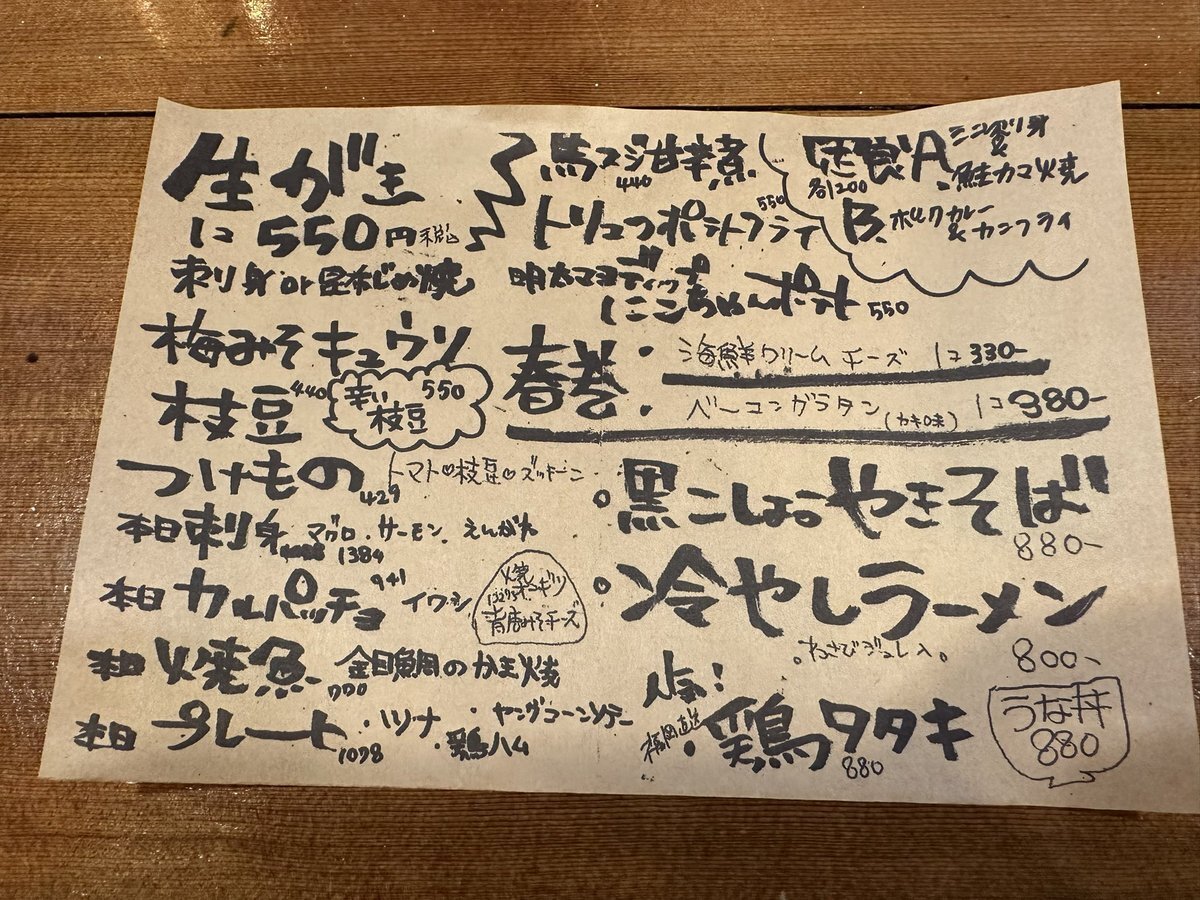 生がき
1コ 550円税込
刺り身 or 昆布じめ焼
梅みそキュウリ
440
枝豆
辛い 550
枝豆
つけもの 429
トマト♡枝豆♡ズッキーニ
本日 刺身 マグロ・サーモン、えんがわ
1384
本日 カルパッチョ 941 イワシ
焼
青唐みそチーズ
本日 焼魚 金目鯛のかま焼
本日 プレート 1078 ・ツナ ・ヤングコーン
・鶏ハム
馬スジ甘辛煮 440
トリュフポテトフライ 550
明太マヨディップ
にこちゃんポテト 550
定食A ミニ刺り身
& 鮭カマ焼
各1200
B、ポークカレー
& カニフライ
春巻
・海鮮クリームチーズ 1コ 330-
・ベーコングラタン(カキ味) 1コ 380-
・黒こしょうやきそば
880-
・冷やしラーメン
・わさびジュレ入・
800-
人気!
福岡直送
・鶏タタキ 880
うな丼
880